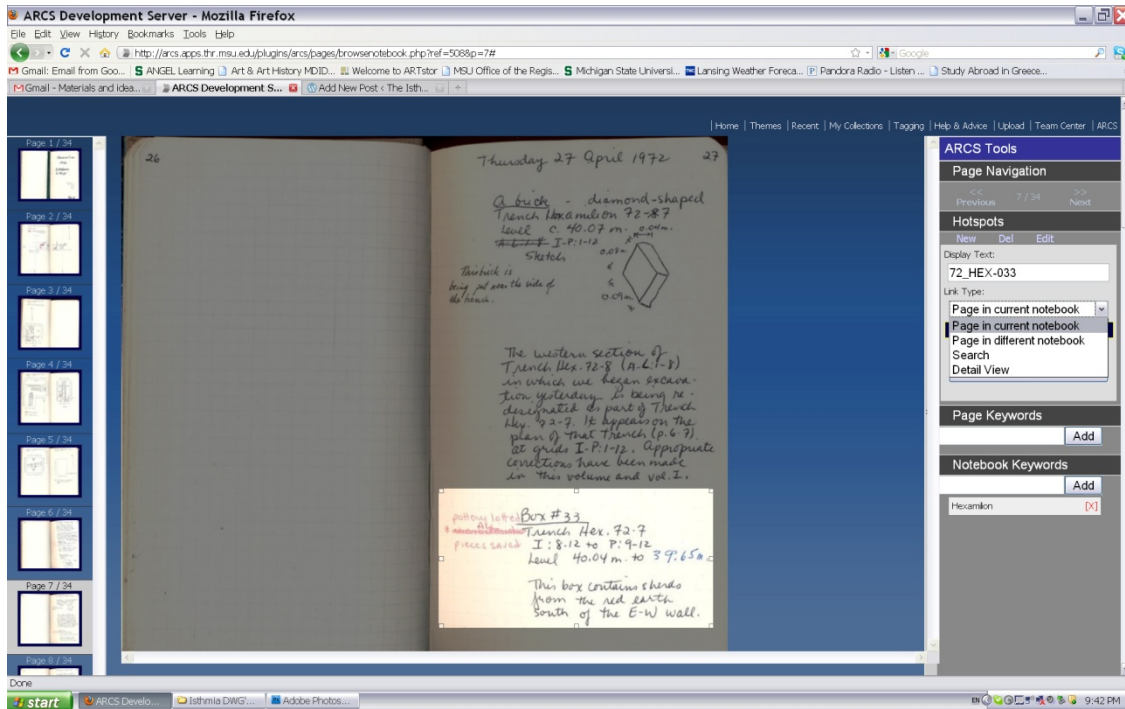 ARCS Development Server - Mozilla Firefox
File Edit View History Bookmarks Tools Help
http://arcs.apps.thr.msu.edu/plugins/arcs/pages/browsenotebook.php?ref=508&p=7#
Google
Gmail: Email from Goo... ANGEL Learning Art & Art History MDID... Welcome to ARTstor MSU Office of the Regis... Michigan State Universi... Lansing Weather Foreca... Pandora Radio - Listen ... Study Abroad in Greece...
Gmail - Materials and idea... ARCS Development S... Add New Post ‹ The Isth...
Home | Themes | Recent | My Collections | Tagging | Help & Advice | Upload | Team Center | ARCS
Page 1 / 34
Page 2 / 34
Page 3 / 34
Page 4 / 34
Page 5 / 34
Page 6 / 34
Page 7 / 34
Page 8 / 34
26
Thursday 27 April 1972 27
A brick - diamond-shaped
Trench Hexamilion 72-87
Level c. 40.07 m. 0.04m.
I-P:1-12
Sketch
0.07m
This brick is
being put near the side of
the trench.
0.09m
The western section of
Trench Hex. 72-8 (A-L:1-8)
in which we began excava-
tion yesterday is being re-
designated as part of Trench
Hex. 72-7. It appears on the
plan of that Trench (p. 6-7)
at grids I-P:1-12. Appropriate
corrections have been made
in this volume and vol. I.
pottery lotted Box #33
Trench Hex. 72-7
pieces saved I: 8-12 to P: 9-12
Level 40.04 m. to 39.65m.
This box contains sherds
from the red earth
south of the E-W wall.
ARCS Tools
Page Navigation
<< 7 / 34 >>
Previous Next
Hotspots
New Del Edit
Display Text:
72_HEX-033
Link Type:
Page in current notebook
Page in current notebook
Page in different notebook
Search
Detail View
Page Keywords
Add
Notebook Keywords
Add
Hexamilion [X]
Done
start ARCS Develo... Isthmia DWG'... Adobe Photos... EN 9:42 PM